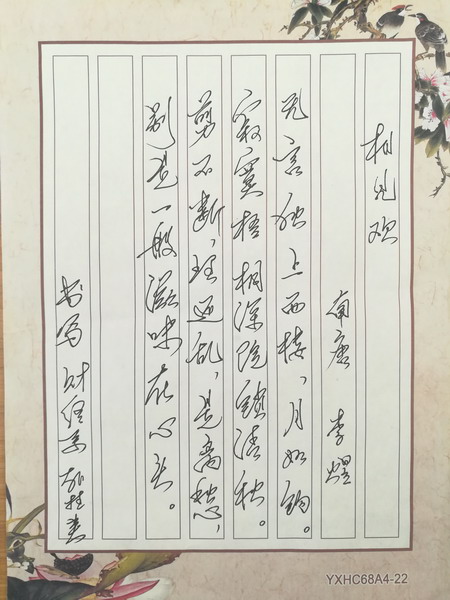 相见欢
南唐 李煜
无言独上西楼，月如钩。
寂寞梧桐深院锁清秋。
剪不断，理还乱，是离愁，
别是一般滋味在心头。
书写 财经系
YXHC68A4-22